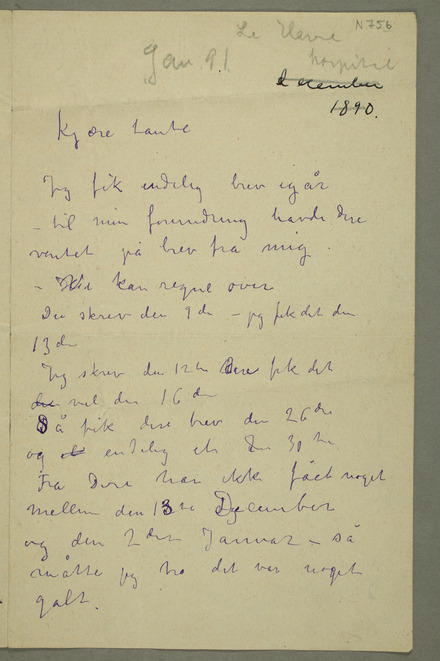 N 756
Le Havre
Jan. 91. hospital
December
1890.
Kjære tante
Jeg fik endelig brev igår
– til min forundring havde Dere
ventet på brev fra mig.
– De kan regne over
Dere skrev den 9de – jeg fik det den
13de
Jeg skrev den 12te Dere fik det
vel den 16de
Så fik dere brev den 26de
og endelig et den 30te
Fra Dere har ikke fået noget
mellem den 13de December
og den 2den Januar – så
måtte jeg tro det var noget
galt.